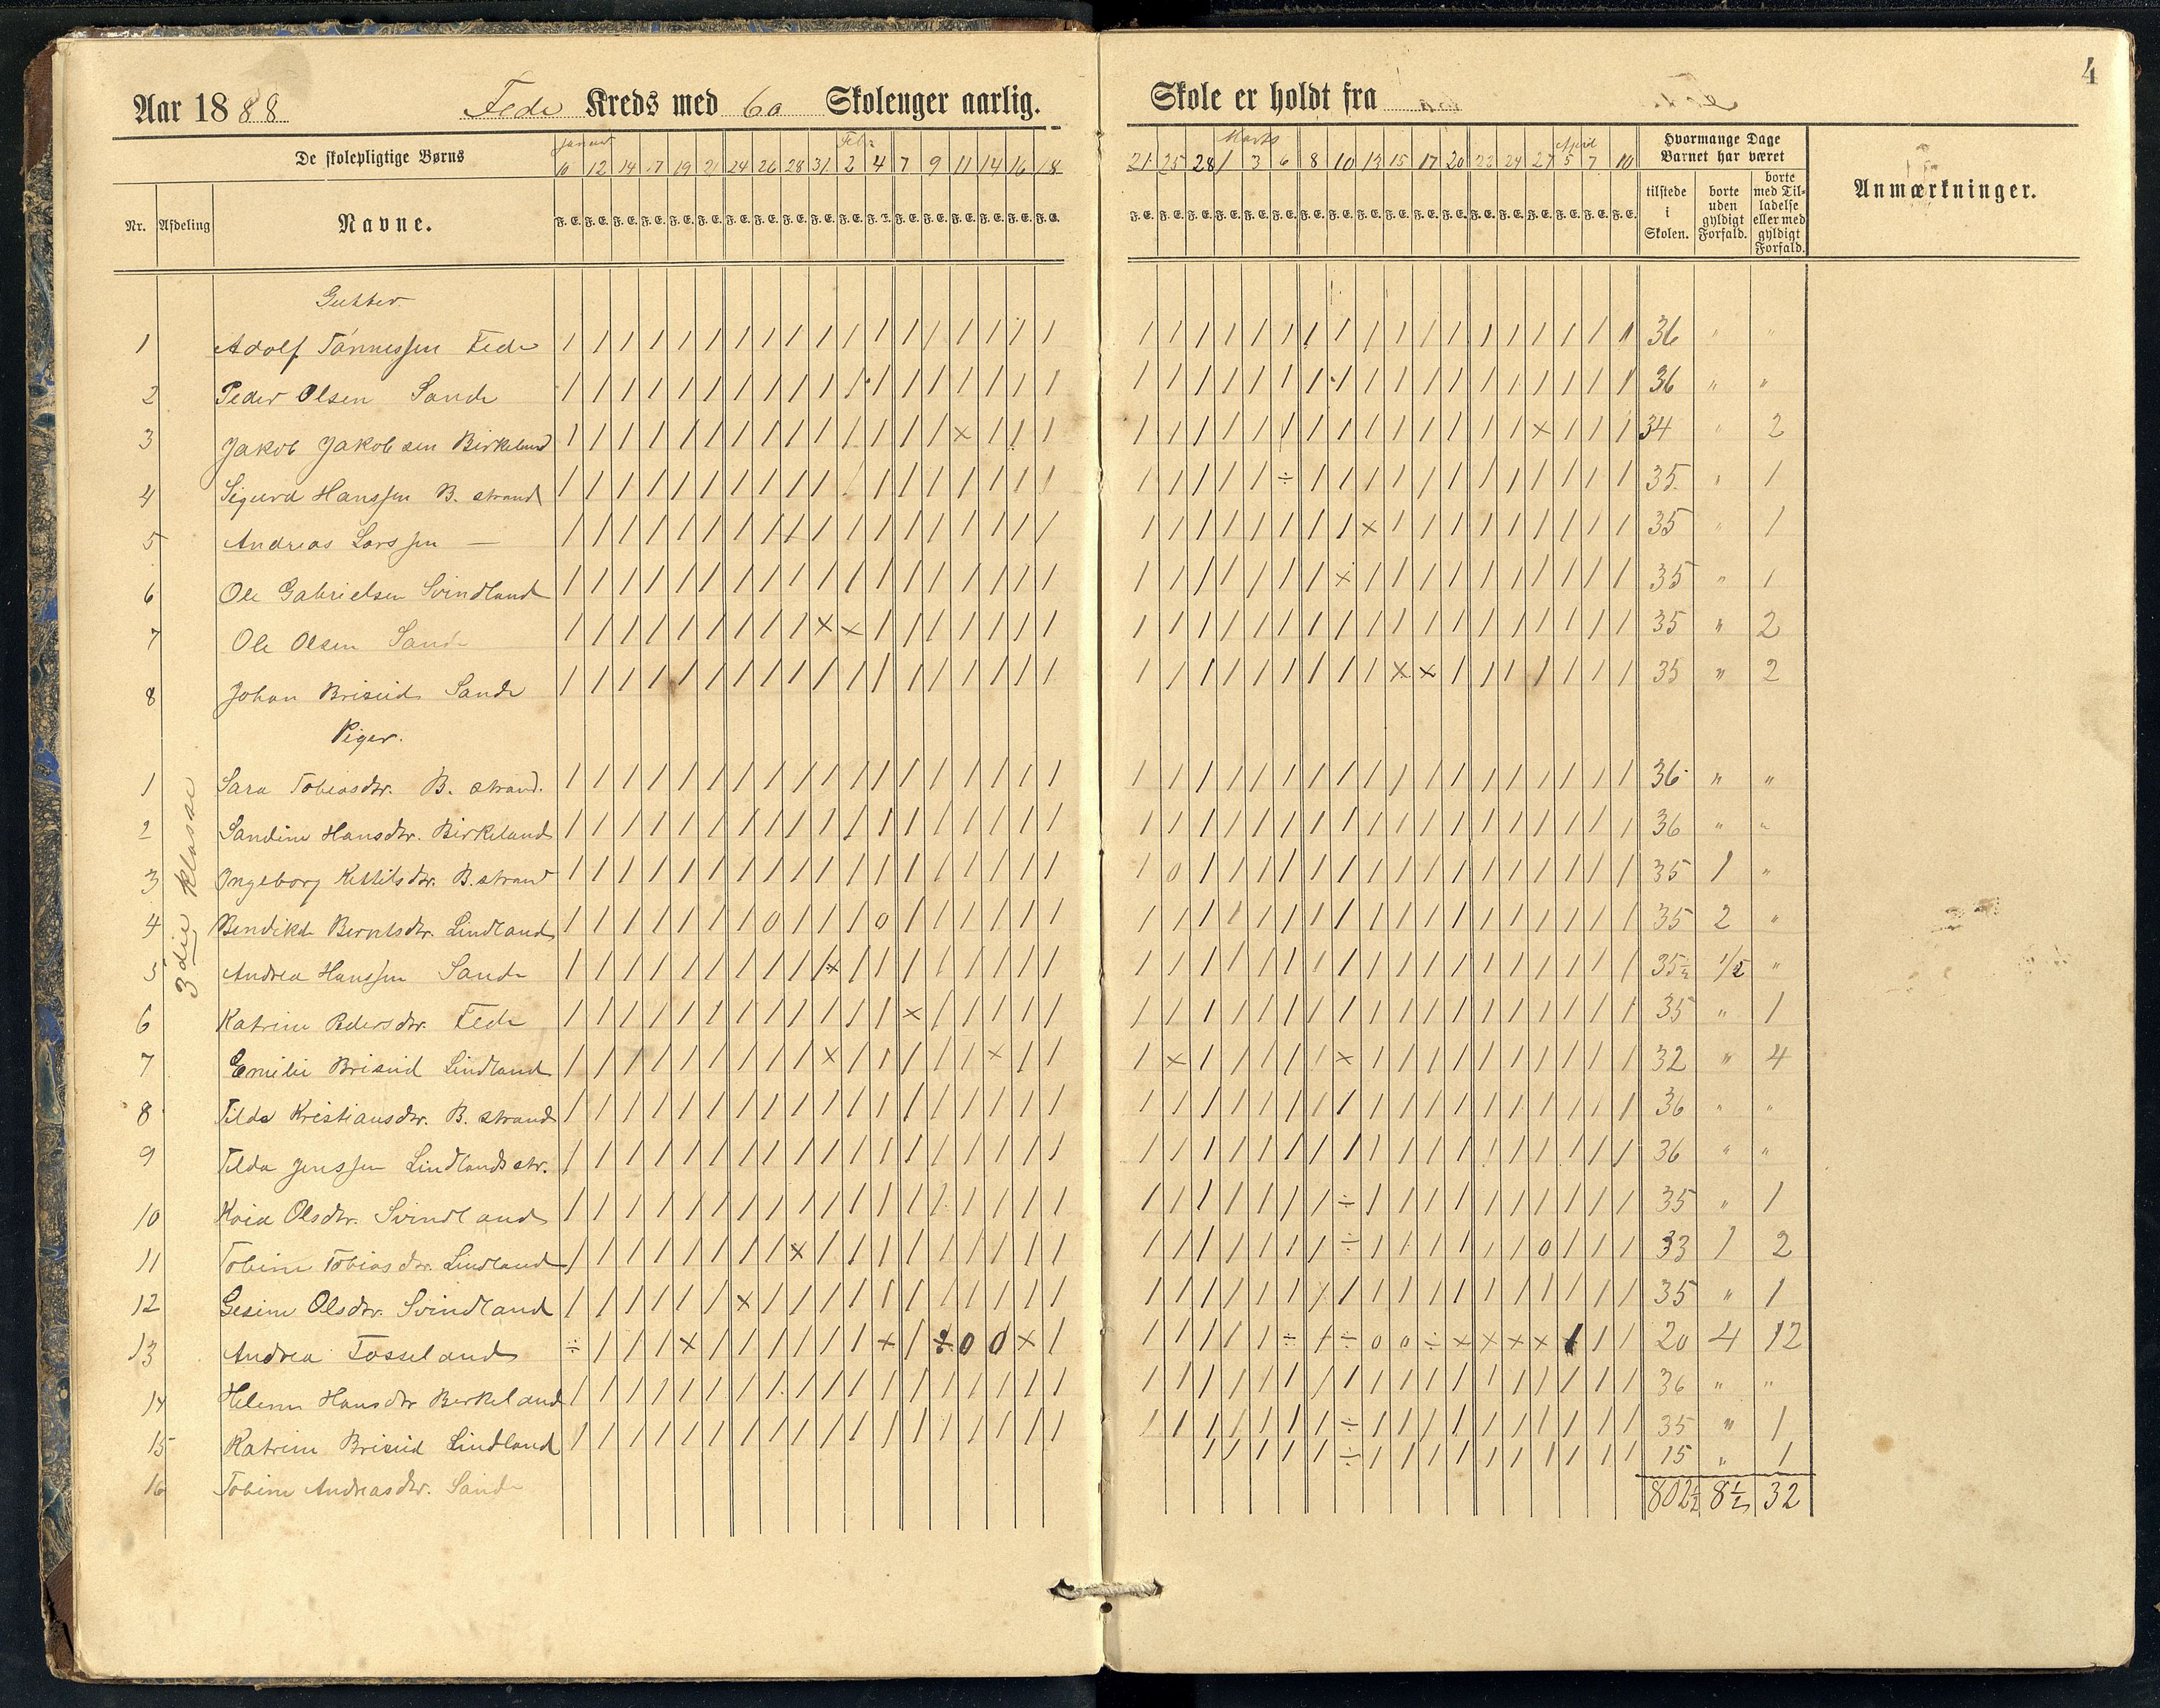 4
Aar 1888 Fede Kreds med 6a Skoleuger aarlig. Skole er holdt fra
De skolepligtige Børns
Januar Febr Marts April
10 12 14 17 19 21 24 26 28 31 2 4 7 9 11 14 16 18 21 25 28 1 3 6 8 10 13 15 17 20 22 24 27 5 7 10
Hvormange Dage Barnet har været
Anmærkninger.
Nr. Afdeling Navne.
F. E. F. E. F. E. F. E. F. E. F. E. F. E. F. E. F. E. F. E. F. E. F. E. F. E. F. E. F. E. F. E. F. E. F. E.
F. E. F. E. F. E. F. E. F. E. F. E. F. E. F. E. F. E. F. E. F. E. F. E. F. E. F. E. F. E. F. E. F. E. F. E.
tilstede i Skolen.
borte uden gyldigt Forfald.
borte med Tilladelse eller med gyldigt Forfald.
Gutter.
1 Adolf Tönnessen Fede 36 " "
2 Peder Olsen Sande 36 " "
3 Jakob Jakobsen Birkeland 34 " 2
4 Sigurd Hanssen B. strand 35 " 1
5 Andreas Larssen — 35 " 1
6 Ole Gabrielsen Svindland 35 " 1
7 Ole Olsen Sande 35 " 2
8 Johan Briseid Sande 35 " 2
Piger.
3die klasse
1 Sara Tobiasdtr. B. strand. 36 " "
2 Sandine Hansdtr. Birkeland 36 " "
3 Ingeborg Kittilsdtr. B. strand 35 1 "
4 Bendikte Berntsdtr. Lindland 35 2 "
5 Andrea Hanssen Sande 35½ 1/2 "
6 Katrine Pedersdtr. Fede 35 " 1
7 Emilie Briseid Lindland 32 " 4
8 Tilda Kristiansdtr. B. strand 36 " "
9 Tilda Jenssen Lindlandsstr. 36 " "
10 Olsdtr. Svindland 35 " 1
11 Tobine Tobiasdtr. Lindland 33 1 2
12 Gesine Olsdtr. Svindland 35 " 1
13 Andrea Fosseland 20 4 12
14 Helene Hansdtr Berkeland 36 " "
15 Katrine Briseid Lindland 35 " 1
16 Tobine Andreasdtr. Sande 15 " 1
802½ 8½ 32